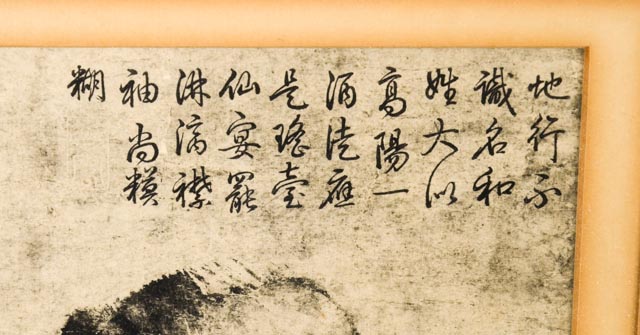 地行不
識名和
姓大似
高陽一
酒徒應
是瑤臺
仙宴罷
淋漓襟
袖尚模
糊